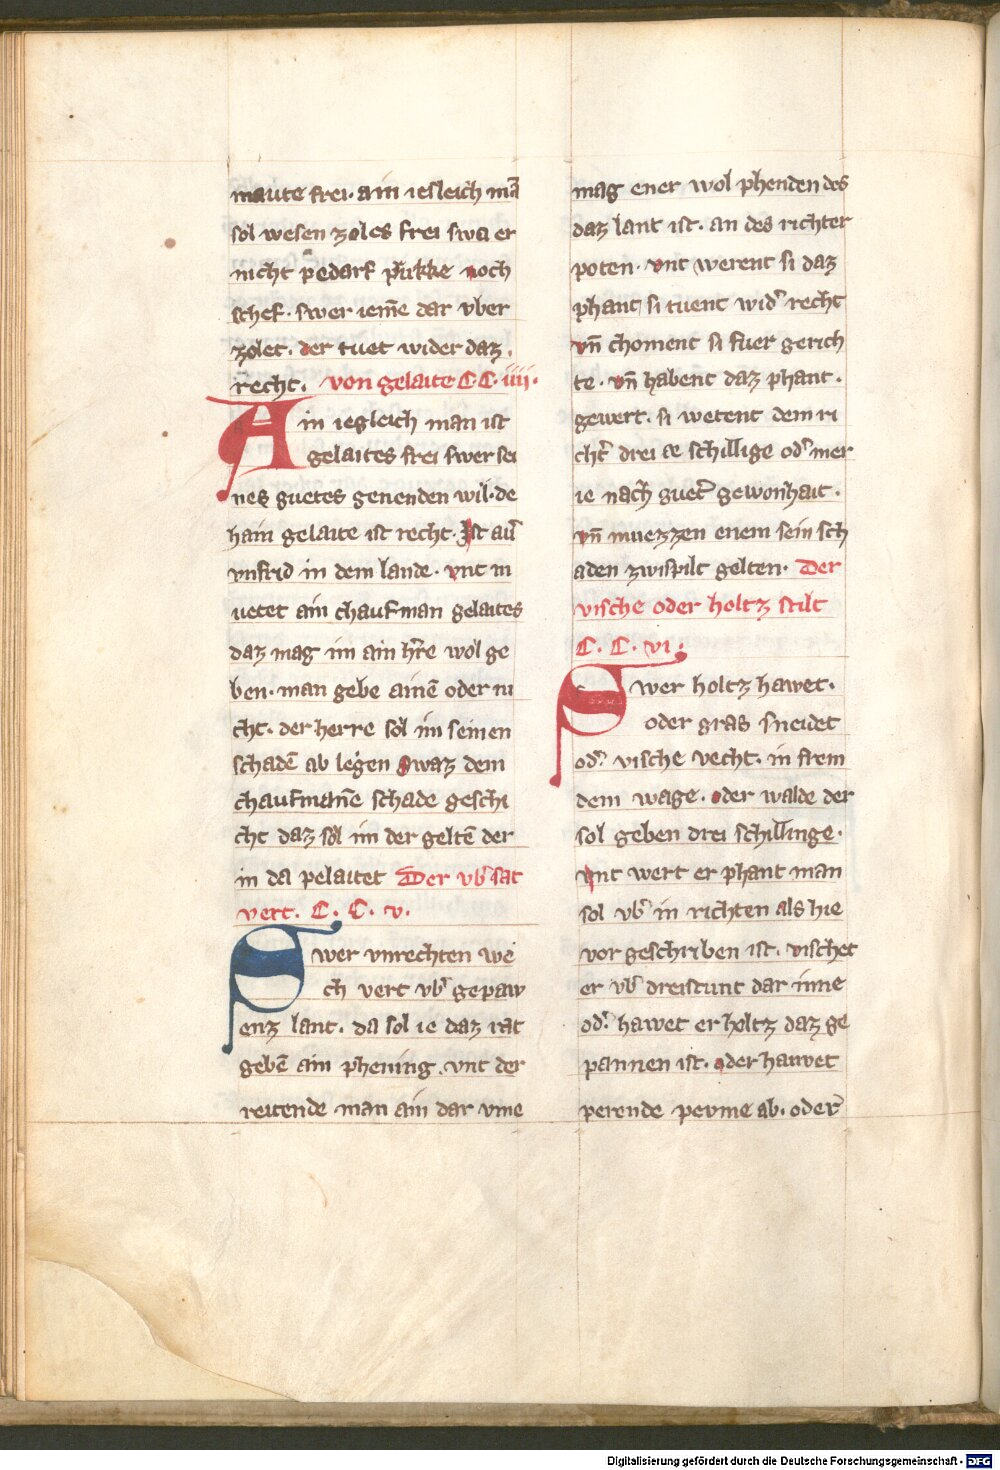 maute frei· ain iesleich mā
sol wesen zoles frei swa er
nicht pedarf prukke noch
schef· swer ieme̅ dar vber
zolet· der tuet wider daz
recht· von gelaite C·C· iiii·
Ain iegleich man ist
gelaites frei swer sei
nes guetes genenden wil· de
hain gelaite ist recht· Ist au͛
vnfrid in dem lande· vnt m
uetet ain chaufman gelaites
daz mag im ain h͛re wol ge
ben· man gebe aine̅ oder ni
cht· der herre sol im seinen
schade̅ ab legen swaz dem
chaufman̅e schade geschi
cht daz sol im der gelte̅ der
in da pelaitet Der vb͛ sat
vert· C· C· v·
Swer vnrechten we
ch vert vb͛ gepaw
enz lant· da sol ie daz rat
gebe̅ ain phening· vnt der
reitende man ain dar vme
mag ener wol phenden des
daz lant ist· an des richter
poten· vnt werent si daz
phant si tuent wid͛ recht
vn̅ choment si fuer gerich
te· vn̅ habent daz phant·
gewert· si wetent dem ri
cht͛ drei se schillige od͛ mer
ie nach guet͛ gewonhait·
vn̅ muezzen enem sein sch
aden zwispilt gelten· Der
vische oder holtz stilt
C· C· vi·
Swer holtz hawet·
oder gras sneidet
od͛ vische vecht· in frem
dem wage· oder walde der
sol geben drei schillinge·
vnt wert er phant man
sol vb͛ in richten als hie
vor geschriben ist· vischet
er vb͛ dreistunt dar inne
od͛ hawet er holtz daz ge
pannen ist· oder hauvet
perende pevme ab· oder
Digitalisierung gefördert durch die Deutsche Forschungsgemeinschaft - DFG